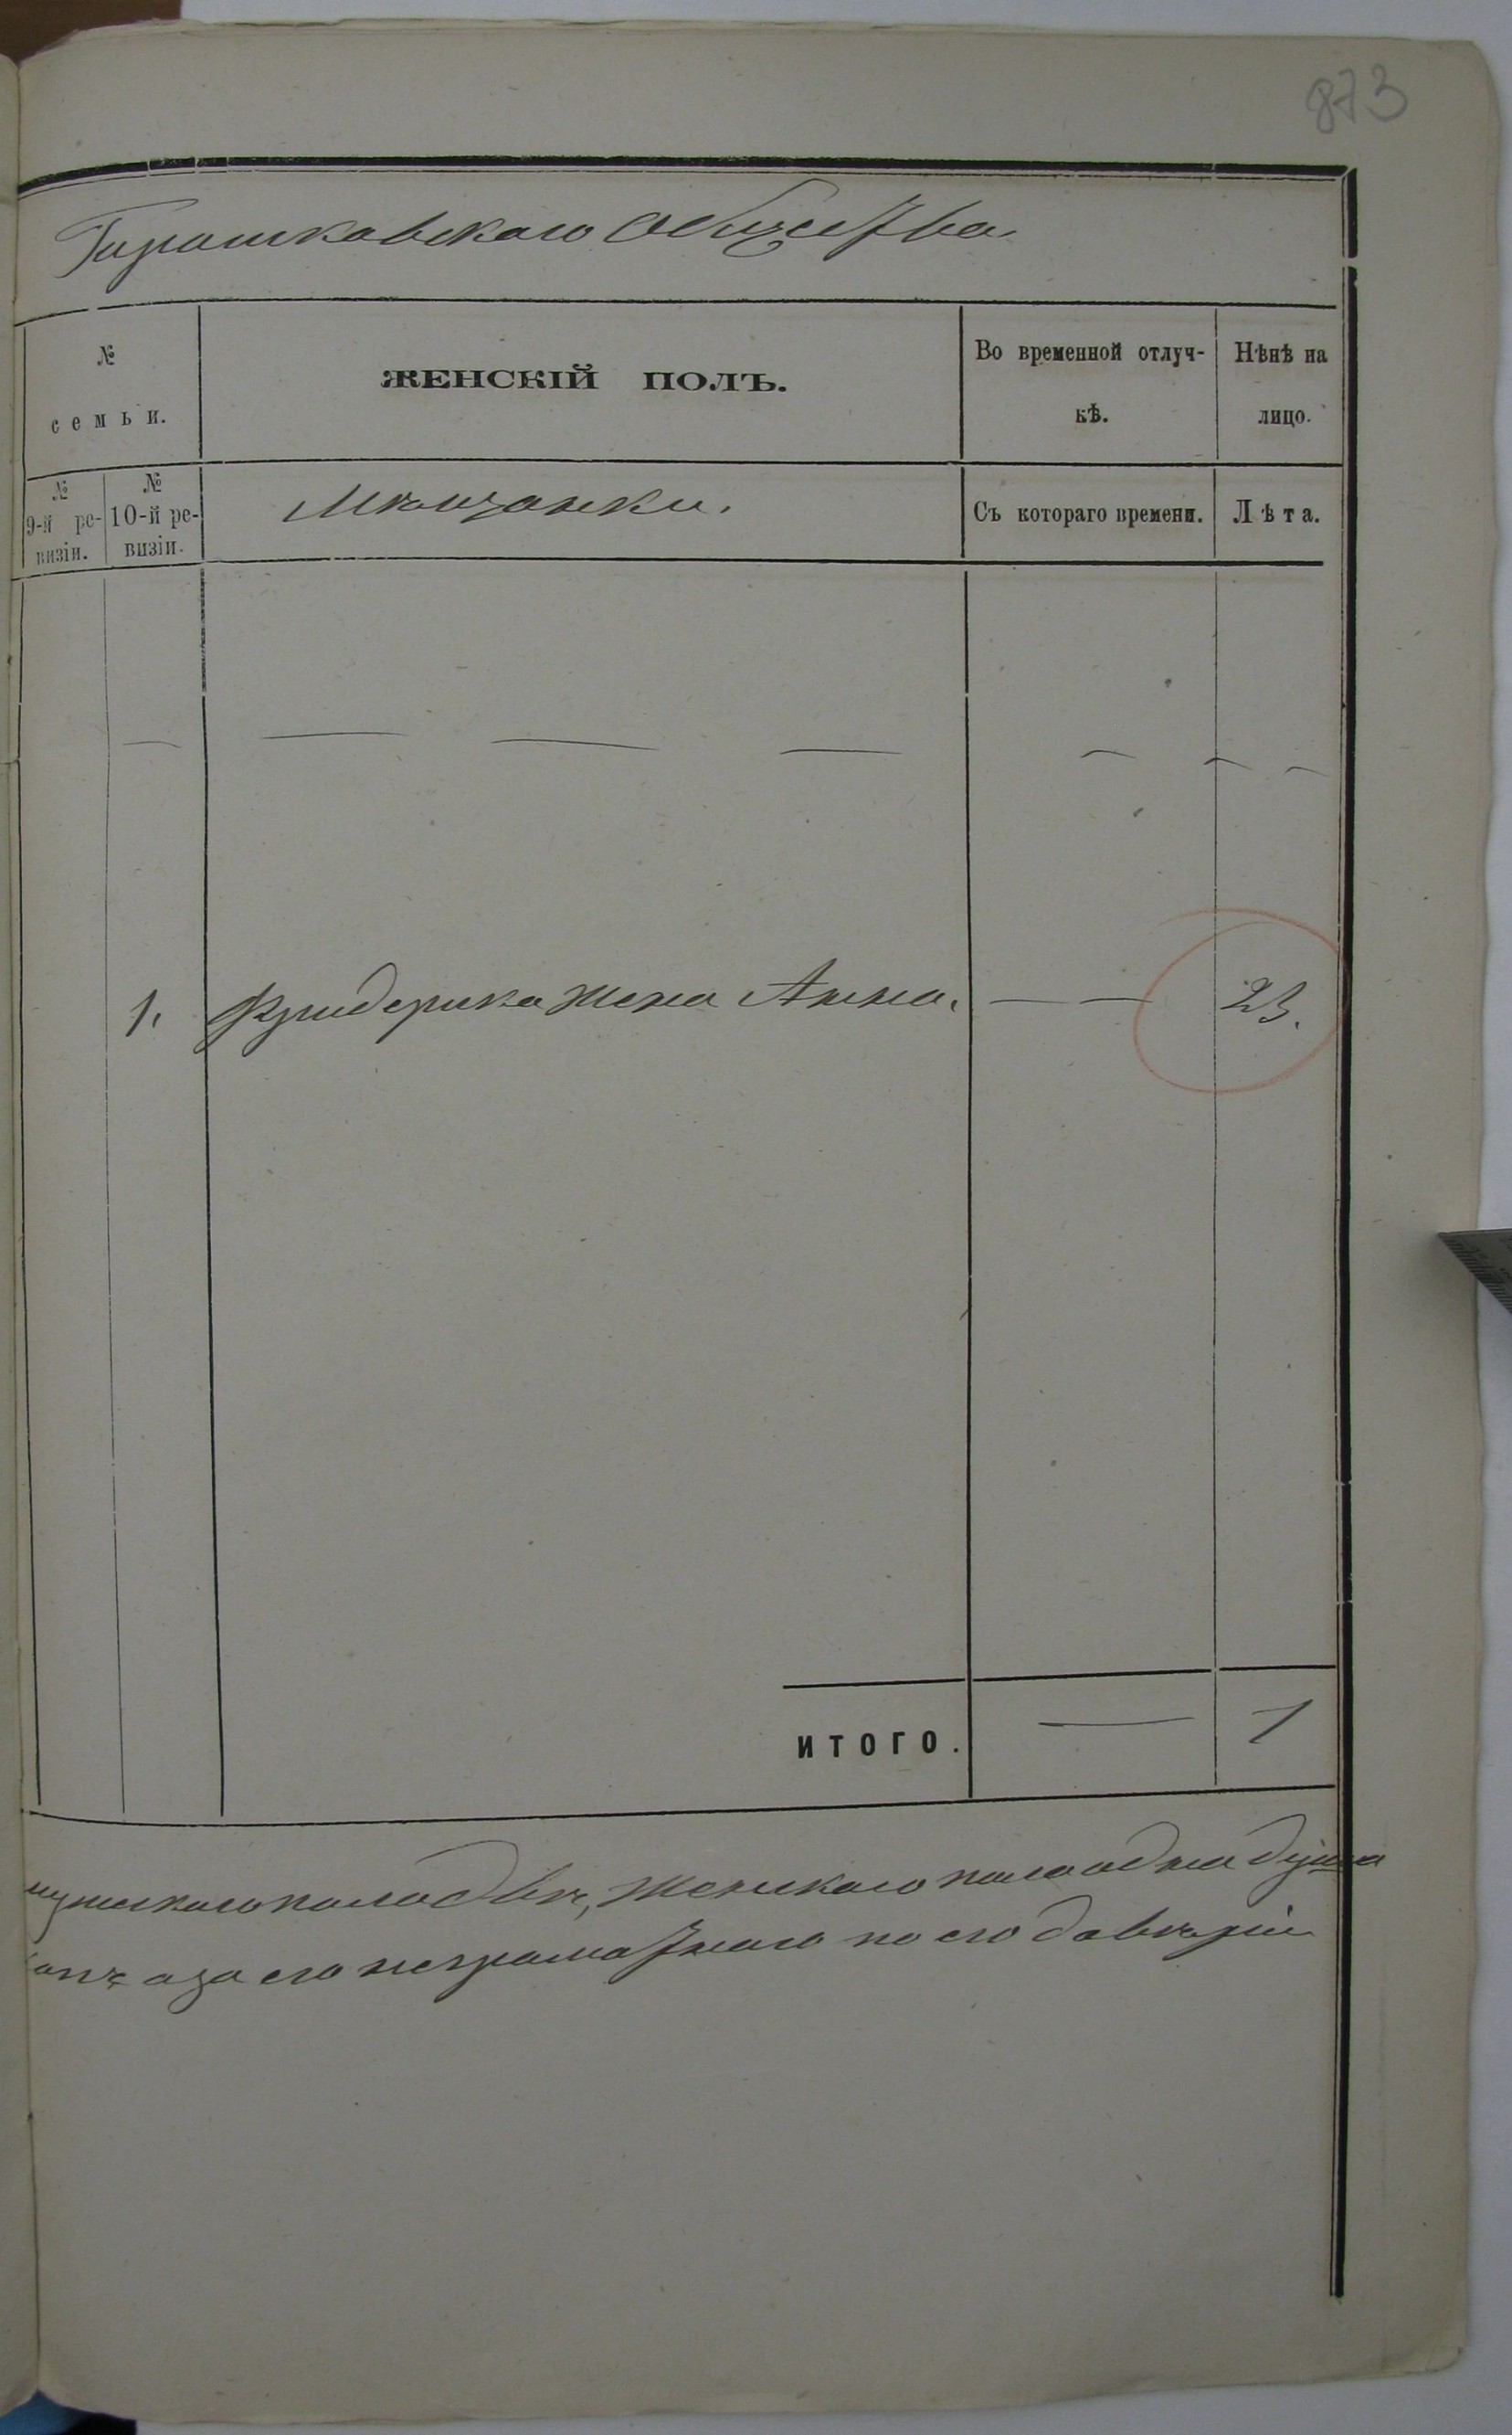 873
Горошковскаго Общества
№ семьи.
ЖЕНСКІЙ ПОЛЪ.
Во временной отлуч-
кѣ.
Нѣнѣ на
лицо.
№ 9-й ре-
визіи.
№ 10-й ре-
визіи.
Мѣщанки.
Съ котораго времени.
Лѣта.
1. Фридерика жена Анна. — — 23.
ИТОГО. — 1
мужескаго пола двѣ, женскаго пола одна душа
а за его неграмотнаго по его довѣрію